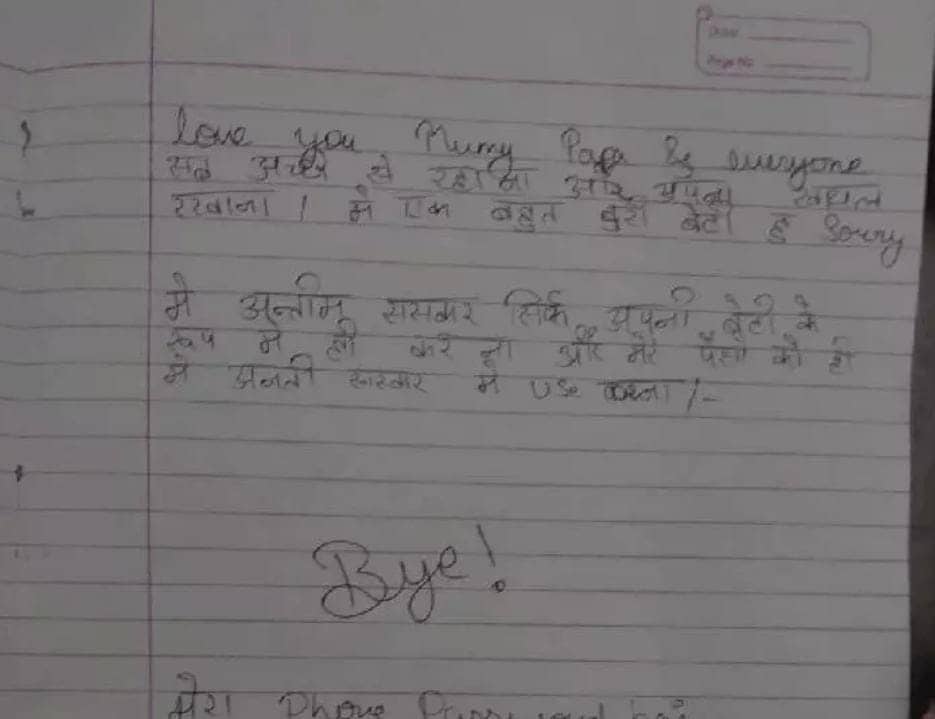 Date
Page No
Love you Mumy Papa & everyone
सब अच्छे से रहाना और अपना ख्याल
रखाना । मे एक बहुत बुरी बेटी हु Sorry
मे अन्तीम ससकार सिर्फ अपनी बेटी के
रूप मे ही कर ना और मेरे पैसो को ही
मे संस्कार मे use करना /-
Bye!
मेरा Phone Password